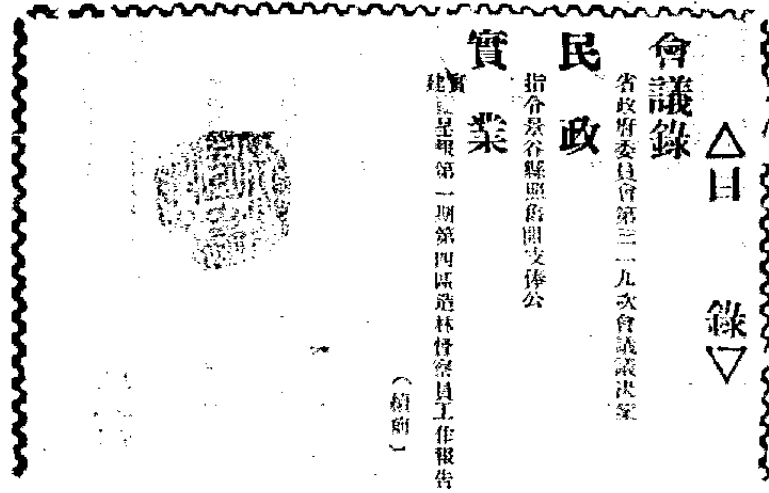 △目錄▽
會議錄
省政府委員會第三一九次會議議决案
民政
指令景谷縣照舊開支俸公
實業
建實呈報第一期第四區造林督察員工作報告